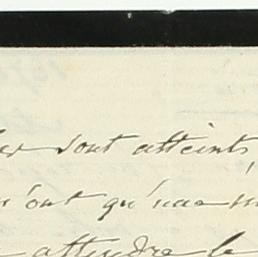 sont atteints
n'ont qu'une
attendre le